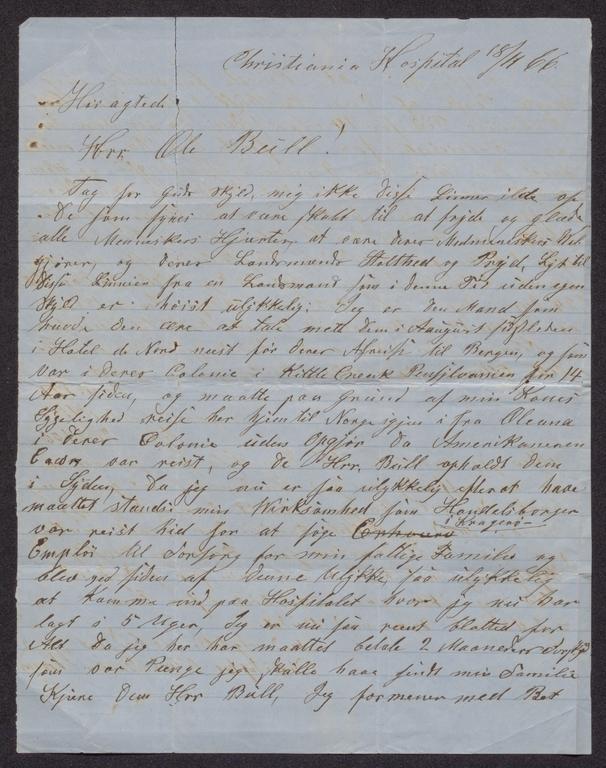 Christiania Hospital 18/11 66.
Høiagtede
Hrr Ole Bull!
Tag for Guds skyld, mig ikke disse Linner ilde op
De som synes at være skabt til at fryde og glæde
alle Menneskers Hjerter at være deres Medmenneskers Vel
gjører, og deres Landsmænds Stolthed og Pryd,
disse Linnier fra en Landsmand som i denne Tid uden egen
Skyld er høist ulykkelig. Jeg er den Mand som
havde den ære at tale med dem i August sidstleden
i Hotel du Nord neist før deres Afreise til Bergen, og som
var i deres Colonie i Kittle Creek Pensilvanien for 14
Aar siden, og maatte paa Grund af min Kones
Sygelighed reise her hjem til Norge igjen i fra Oleana
i deres Colonie uden Opgjør da Amerikaneren
var reist, og de Hrr. Bull opholdt dem
i Syden, Da jeg nu er saa ulykkelig efter at have
maattet standse min Virksomhed som Handelsborger
i Kragerø
var reist hid for at søge
Emploi til Forsorg for min fattige Familie og
blev ved siden af denne Ulykke saa ulykkelig
at komme ind paa Hospitalet hvor jeg nu har
lagt i 5 Uger, Jeg er nu saa rent blottet for
Alt da jeg her har maattet betale 2 Maaneder
som var Penge jeg skulle have sendt min Familie
Kjære Dem Hrr Bull, Jeg formener med Bet